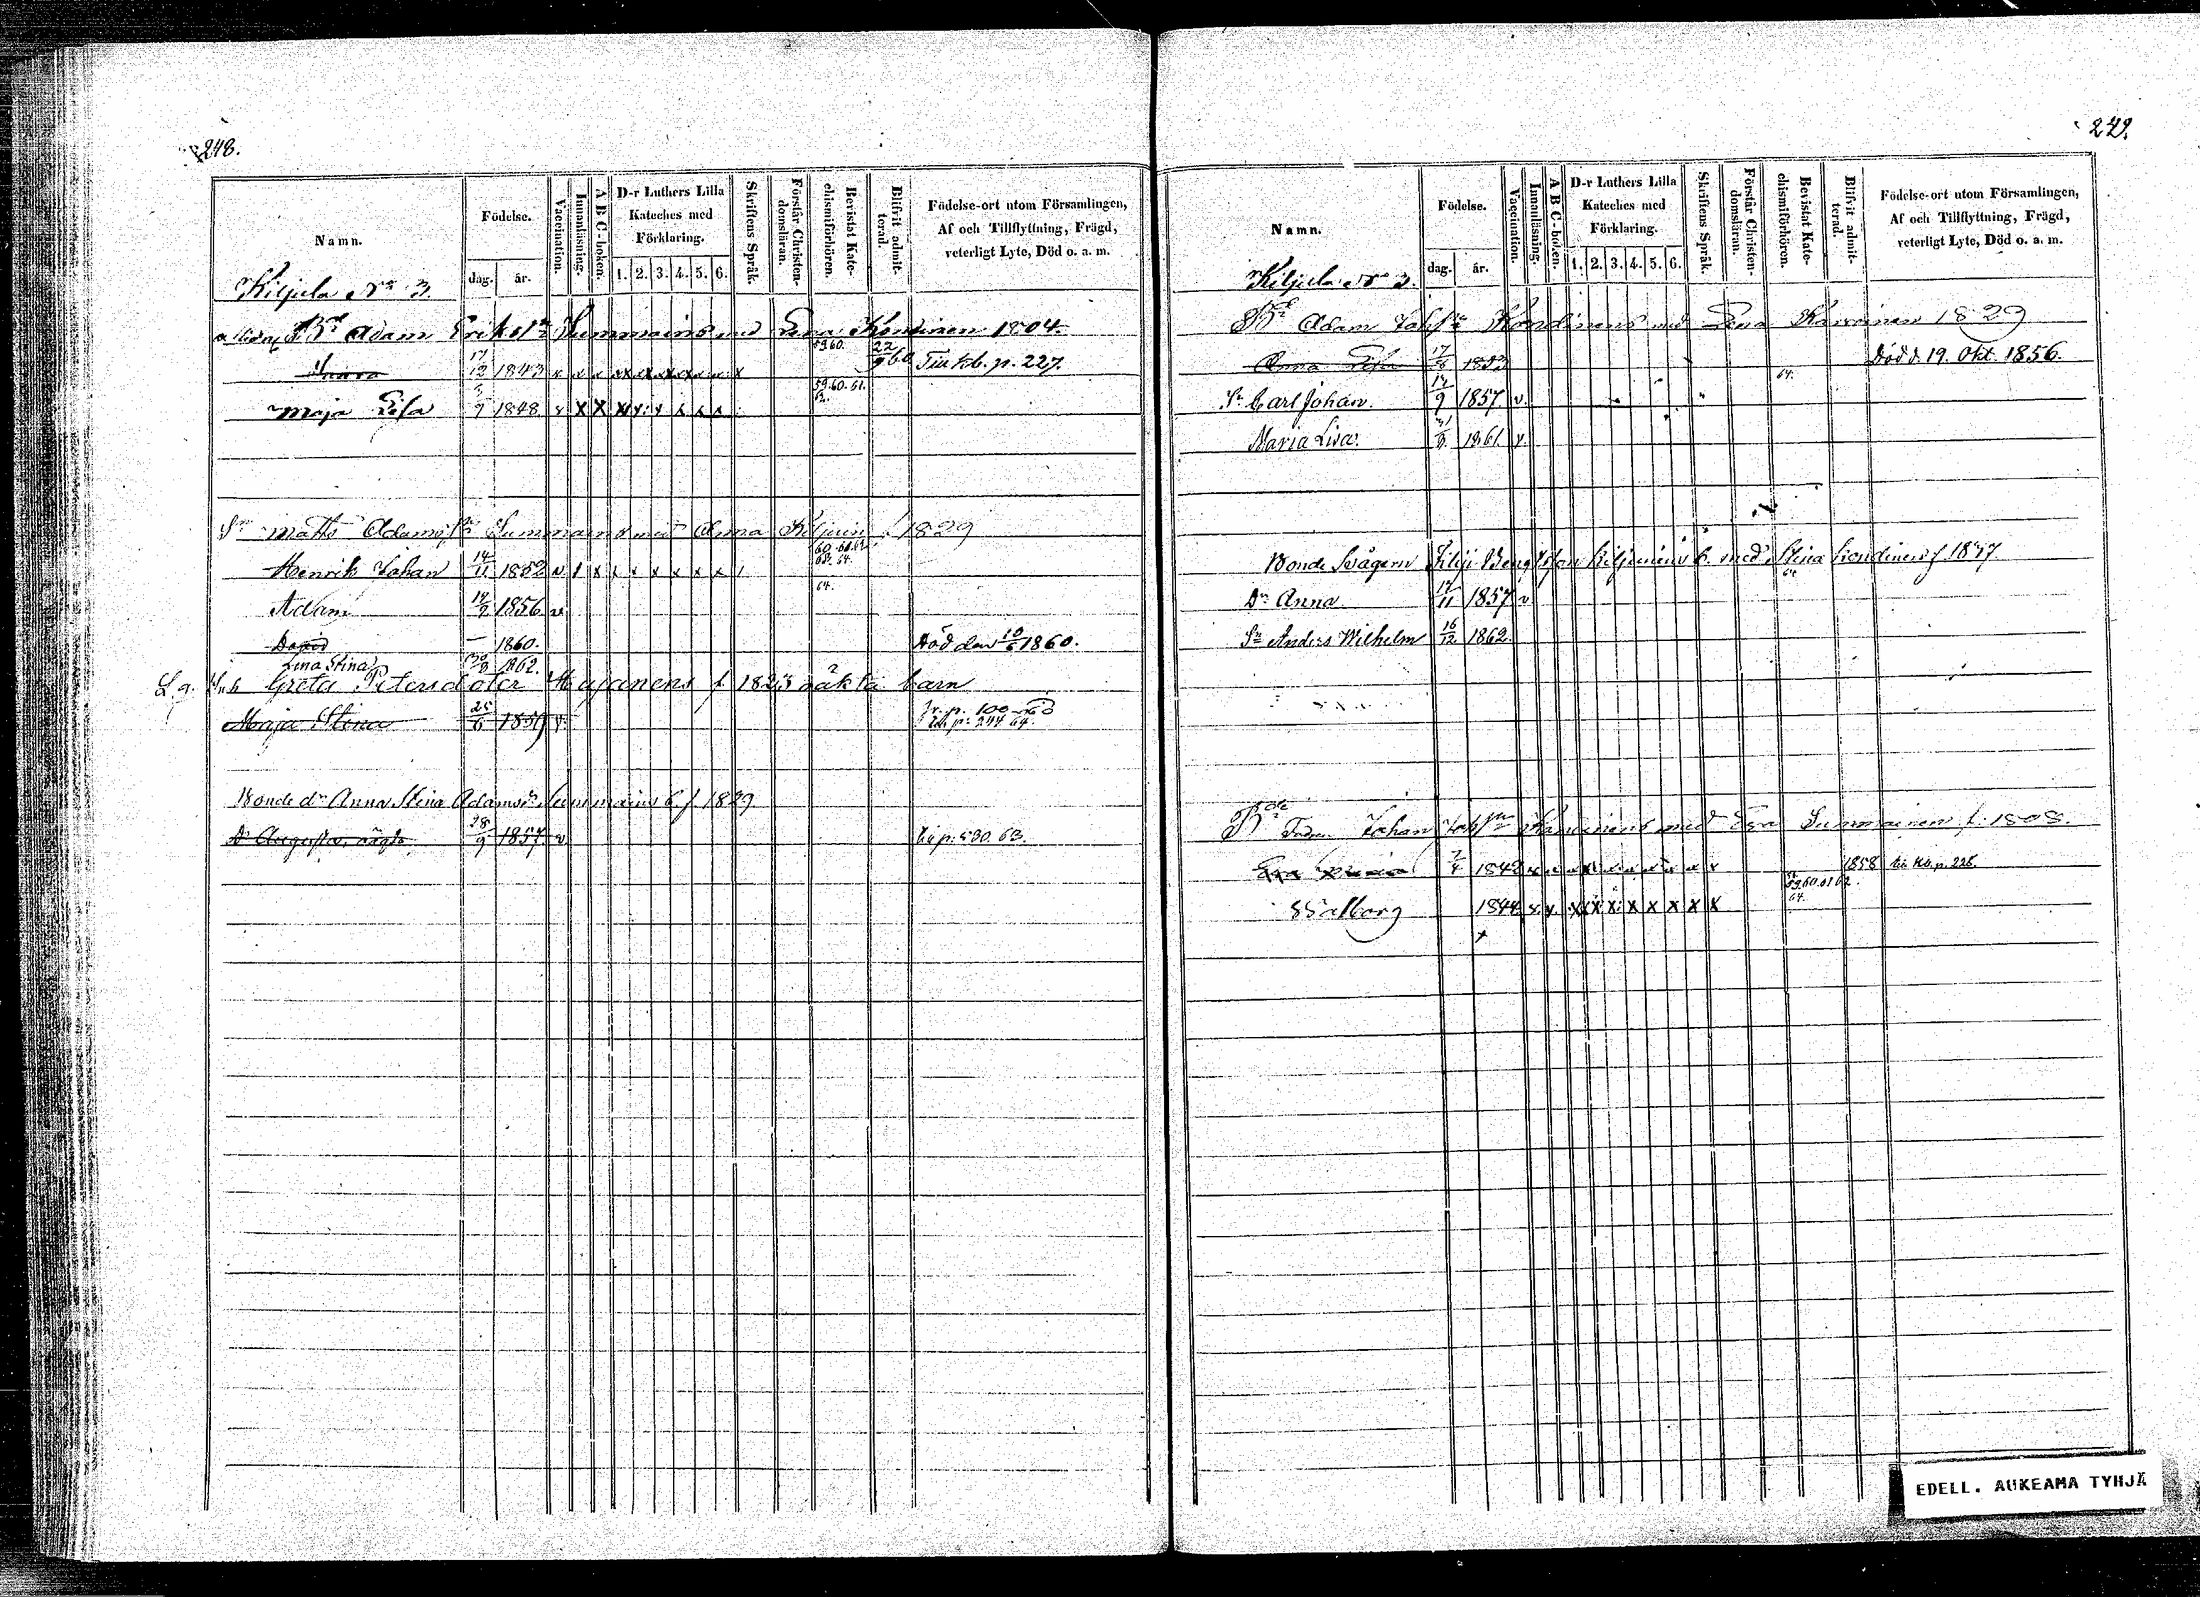 248.
Namn.
Födelse.
dag. år.
Vaccination.
Innanläsning.
A B C-boken.
D-r Luthers Lilla Kateches med Förklaring.
1. 2. 3. 4. 5. 6.
Skriftens Språk.
Förstår Christendomsläran.
Bevistat Katechismiförhören.
Blifvit admitterad.
Födelse-ort utom Församlingen, Af och Tillflyttning, Frägd, veterligt Lyte, Död o. a. m.
Kiljula No 3.
Adam Erikss:n Summains med Lena Kondinen 1804.
17/12 1843 x x x x x x x x x x 59.60. 22/9 60 Till kb. p. 227.
Maja Lisa 9 1848 v x x x x x x x x 59.60.61.
Sn Matts Adamss:n Summains med Anna Kiljuin f. 1829
Henrik Johan 14/11 1852 v x x x x x x x 60.61.62. 63. 64.
Adam 14/9 1856 v 64.
David — 1860. Död den 10/6 1860.
Lina Stina 1862.
Greta Petersdoter Hujanens f 1823 oäkta barn
Maja Stina 25/6 1859 v. fr. p. 100 60
p. 244 64.
Bonde dr Anna Stina Adamsdr Summains f. 1829
Dr Augusta oägta 28/9 1857 v. p. 530. 63.
249.
Namn.
Födelse.
dag. år.
Vaccination.
Innanläsning.
A B C-boken.
D-r Luthers Lilla Kateches med Förklaring.
1. 2. 3. 4. 5. 6.
Skriftens Språk.
Förstår Christendomsläran.
Bevistat Katechismiförhören.
Blifvit admitterad.
Födelse-ort utom Församlingen, Af och Tillflyttning, Frägd, veterligt Lyte, Död o. a. m.
Kiljula No 3.
Adam Kondinens med Lena Karvinen 1829
Anna Lisa 17/8 1853 Död d. 19. Okt. 1856.
Sn Carl Johan. 9 1857 v. 64.
Maria Lisa 1861 v.
Bonde Svågern Filip Bengtsson Kiljunens b. med Stina Kondinens f 1837
Dr Anna 11 1857 v 64
Sn Anders Wilhelm 16/12 1862.
Johan Karvinens med Eva Summainen f. 1808.
Eva 1842 1858 till Kb. p. 228.
Walborg 1844 v. v. x x x x x x x x 59.60.61 62. 64.
EDELL. AUKEAMA TYHJÄ